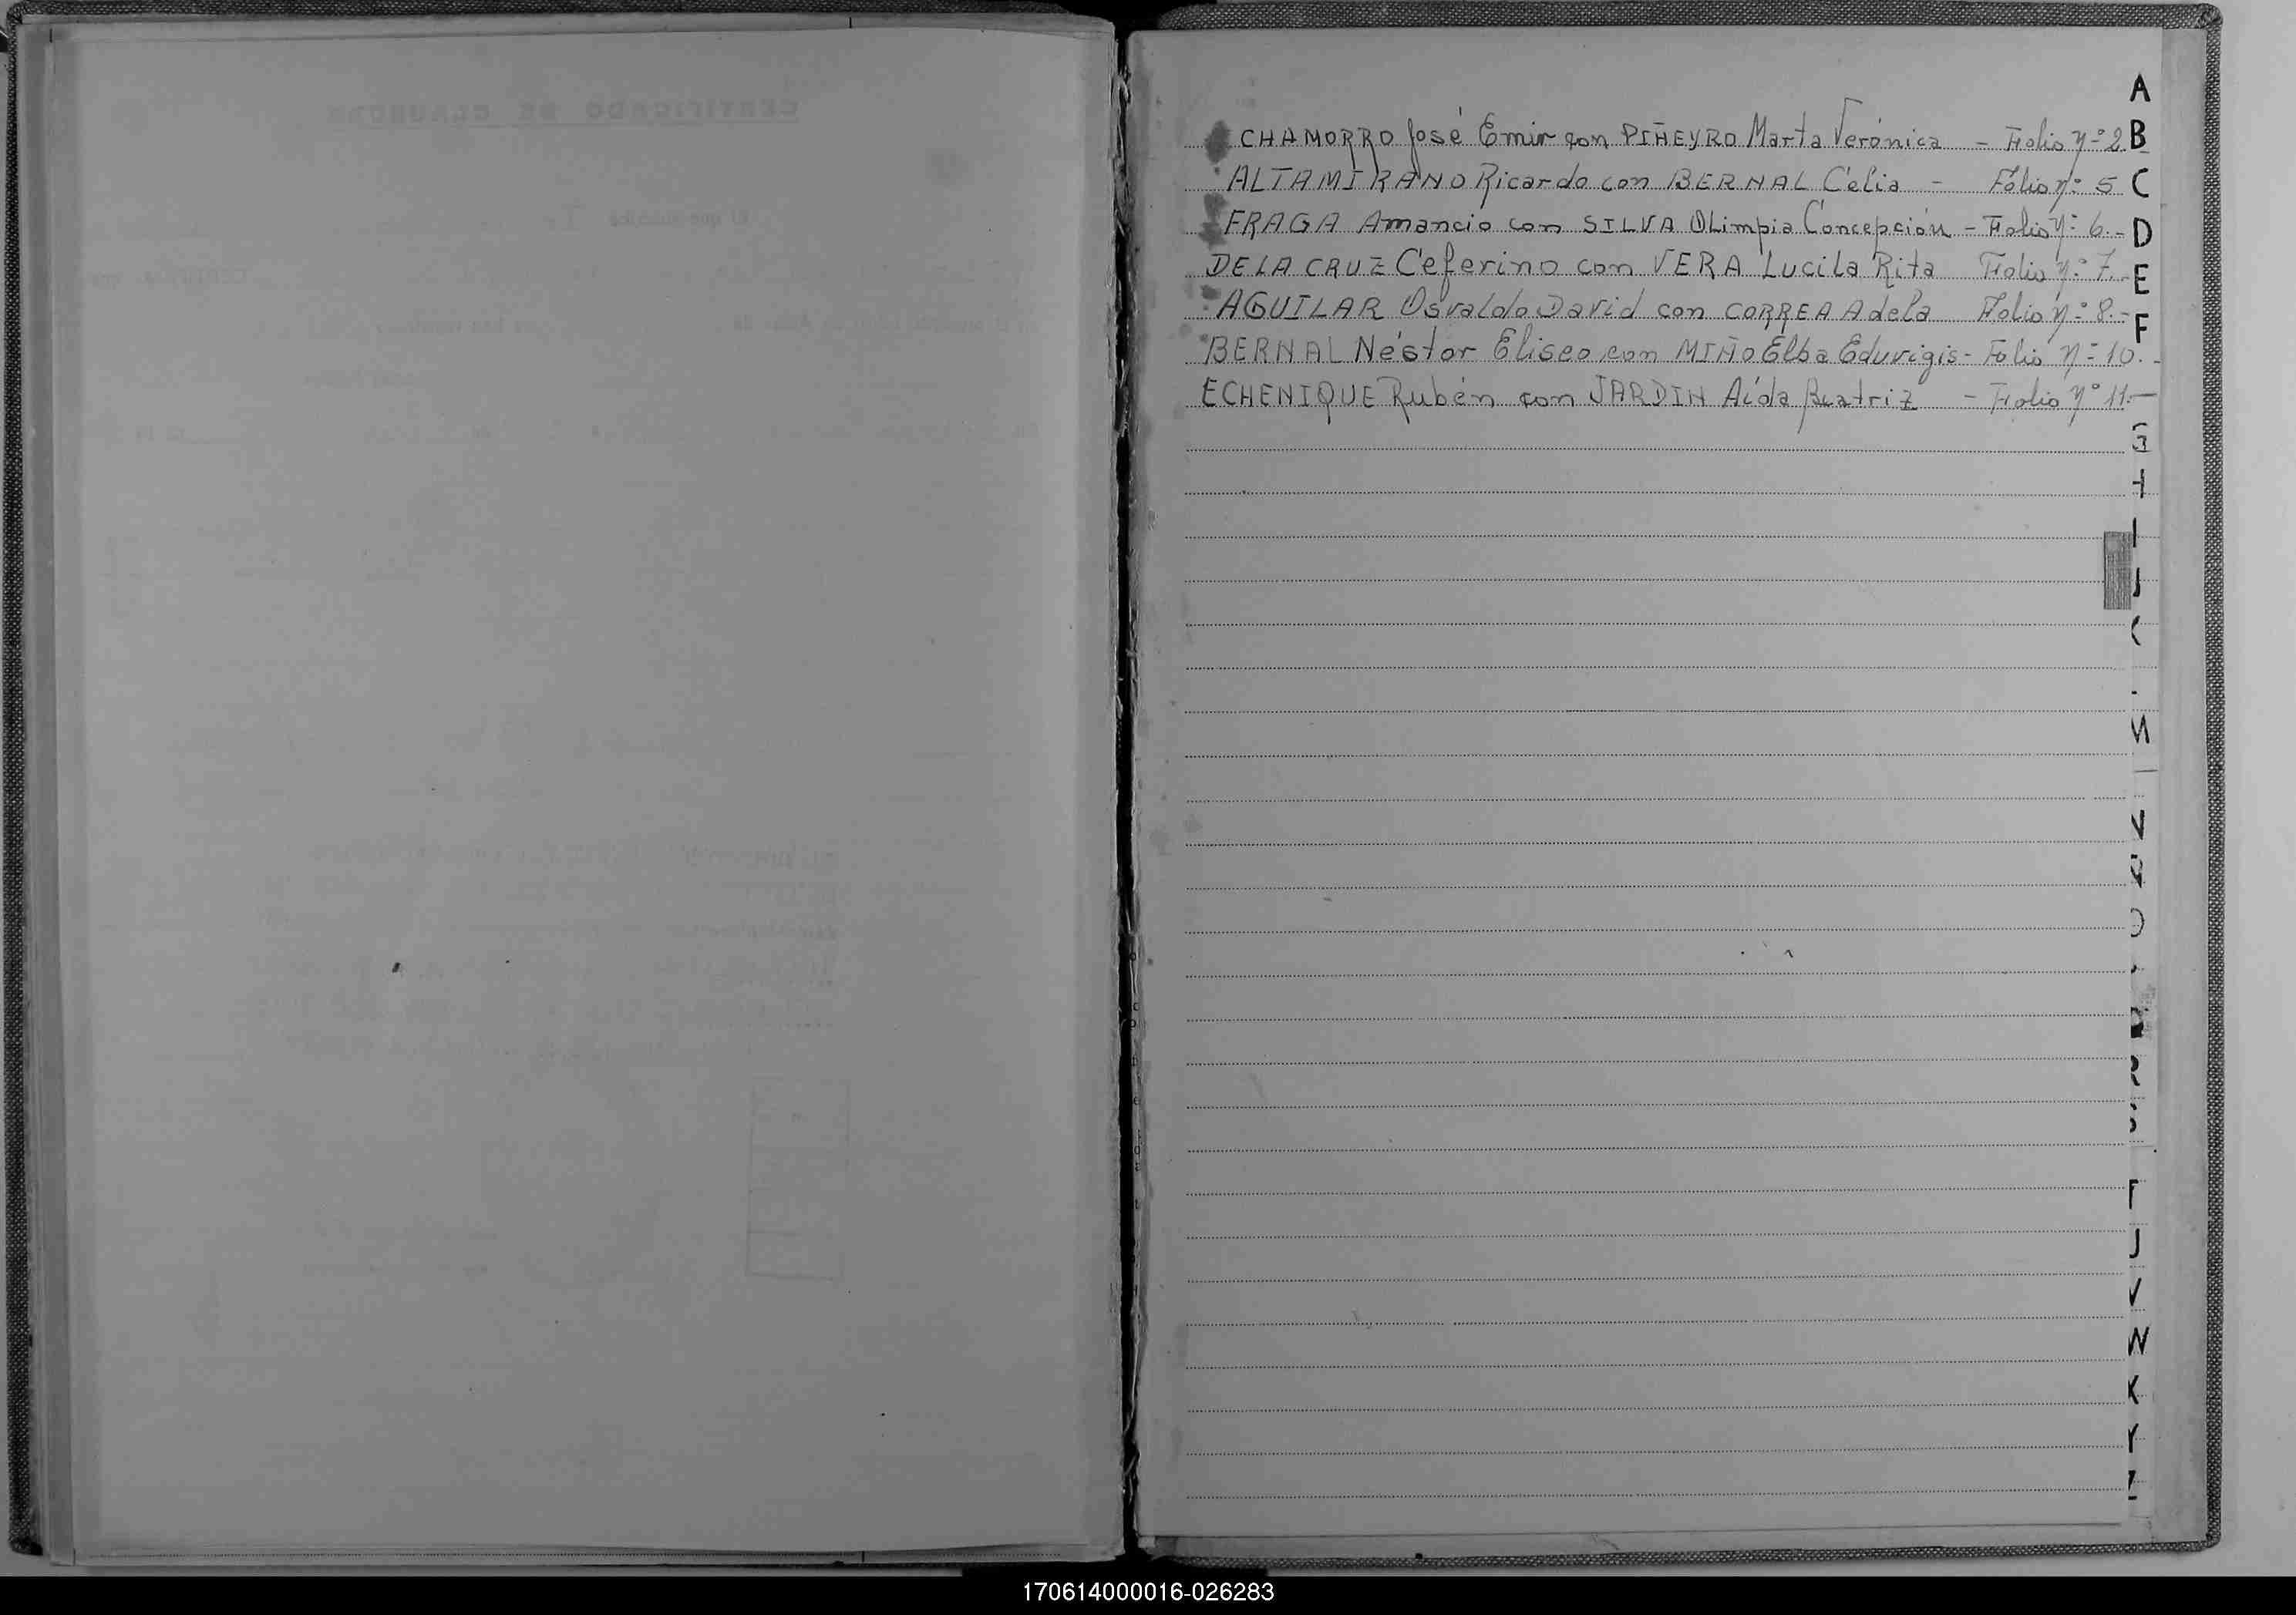 CHAMORRO José Emir con PIÑEYRO Marta Verónica - Folio nº 2
ALTAMIRANO Ricardo con BERNAL Celia - Folio nº 5
FRAGA Amancio con SILVA Olimpia Concepción - Folio nº 6.-
DE LA CRUZ Ceferino con VERA Lucila Rita Folio nº 7.-
AGUILAR Osvaldo David con CORREA Adela Folio nº 8.-
BERNAL Néstor Eliseo con MIÑO Elba Eduvigis - Folio nº 10.-
ECHENIQUE Rubén con JARDIN Aída Beatriz - Folio nº 11.-
A
B
C
D
E
F
G
H
I
J
K
M
N
O
R
S
T
U
V
W
Y
Z
170614000016-026283